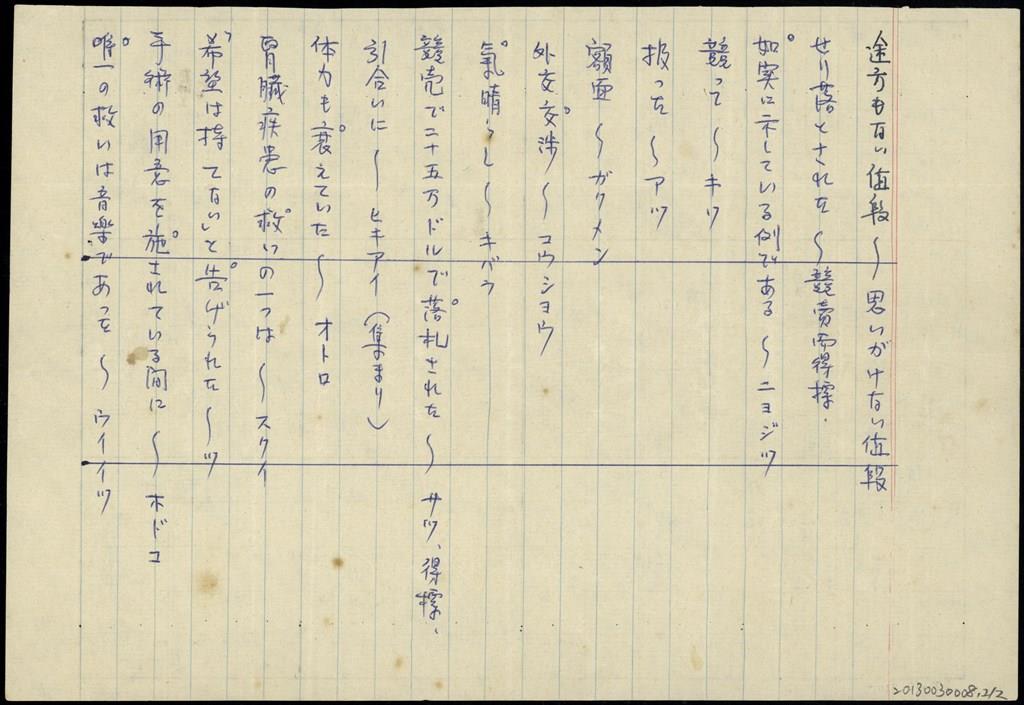 途方もない値段 〜 思いがけない値段
せり落とされた 〜 競売而得標.
如実に示している例である 〜 ニョジツ
競って 〜 キソ
扱った 〜 アツ
額面 〜 ガクメン
外交交渉 〜 コウショウ
氣晴らし 〜 キバラ
競売で二十五万ドルで落札された 〜 サツ、得標.
引合いに 〜 ヒキアイ (集まり)
体力も衰えていた 〜 オトロ
胃臓疾患の救いの一つは 〜 スクイ
希望は持てないと告げられた 〜 ツ
手術の用意を施されている間に 〜 ホドコ
唯一の救いは音楽であった 〜 ウイイツ
20130030008.2/2